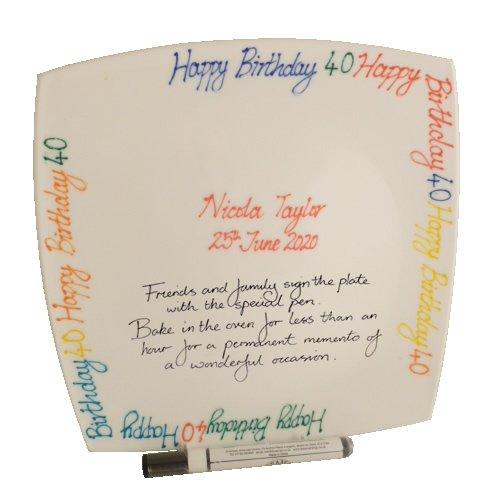 Happy Birthday 40 Happy
Birthday 40 Happy Birthday 40
Nicola Taylor
25th June 2020
Friends and family sign the plate
with the special pen.
Bake in the oven for less than an
hour for a permanent memento of
a wonderful occasion.
Happy Birthday 40 Happy
Birthday 40 Happy Birthday 40